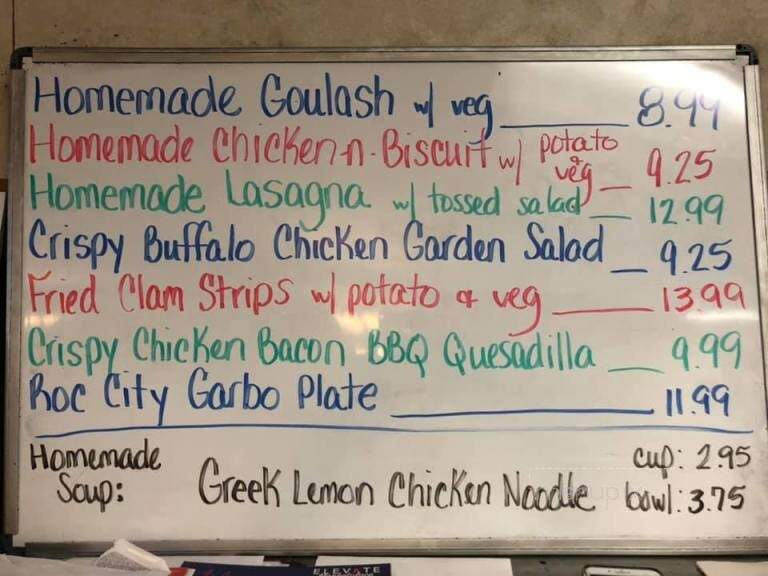 Homemade Goulash w/ veg 8.99
Homemade Chicken-n-Biscuit w/ potato & veg 9.25
Homemade Lasagna w/ tossed salad 12.99
Crispy Buffalo Chicken Garden Salad 9.25
Fried Clam Strips w/ potato & veg 13.99
Crispy Chicken Bacon BBQ Quesadilla 9.99
Roc City Garbo Plate 11.99
Homemade Soup: Greek Lemon Chicken Noodle
cup: 2.95
bowl: 3.75
ELEVATE